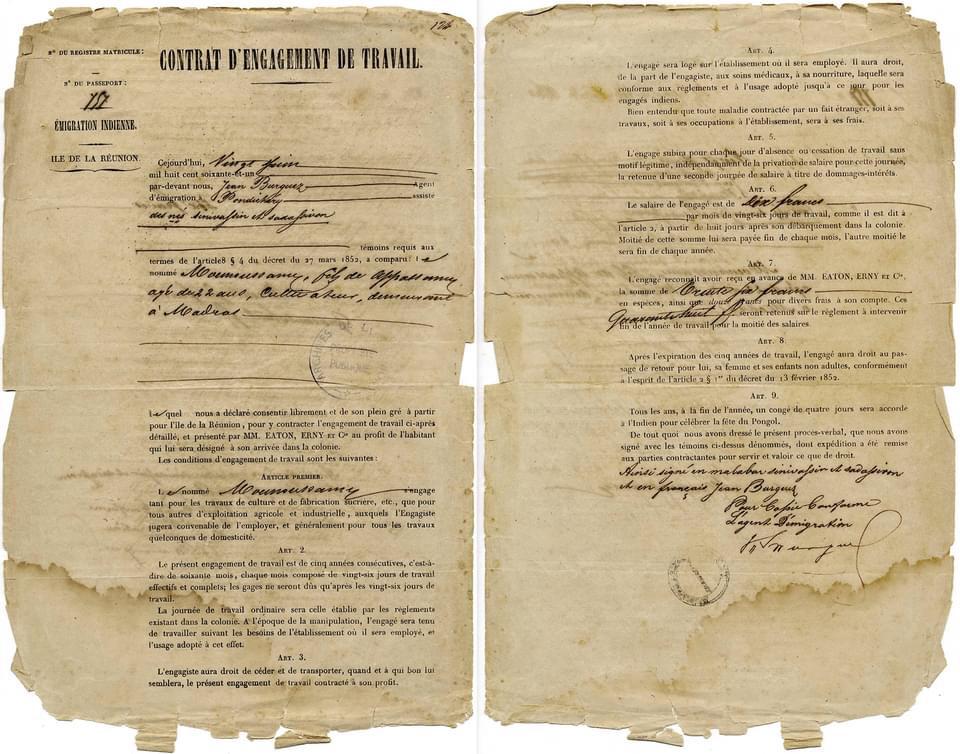 124
Nº DU REGISTRE MATRICULE :
CONTRAT D'ENGAGEMENT DE TRAVAIL.
Nº DU PASSEPORT :
757
ÉMIGRATION INDIENNE.
ILE DE LA RÉUNION.
Cejourd'hui, Vingt Juin
mil huit cent soixante-et-un
par-devant nous, Jean Burguez Agent
d'émigration à Pondichéry assisté
des nés sinivassin et sadassivon
témoins requis aux
termes de l'article8 § 4 du décret du 27 mars 1852, a comparu: le
nommé Mounoussamy, fils de Appassamy
agé de 22 ans, Cultivateur, demeurant
à Madras
ARCHIVES DE L
le quel nous a déclaré consentir librement et de son plein gré à partir
pour l'île de la Réunion, pour y contracter l'engagement de travail ci-après
détaillé, et présenté par MM. EATON, ERNY ET Cie au profit de l'habitant
qui lui sera désigné à son arrivée dans la colonie.
Les conditions d'engagement de travail sont les suivantes :
ARTICLE PREMIER.
Le nommé Mounoussamy s'engage
tant pour les travaux de culture et de fabrication sucrière, etc., que pour
tous autres d'exploitation agricole et industrielle, auxquels l'Engagiste
jugera convenable de l'employer, et généralement pour tous les travaux
quelconques de domesticité.
ART. 2.
Le présent engagement de travail est de cinq années consécutives, c'est-à-
dire de soixante mois, chaque mois composé de vingt-six jours de travail
effectifs et complets; les gages ne seront dûs qu'après les vingt-six jours de
travail.
La journée de travail ordinaire sera celle établie par les réglements
existant dans la colonie. A l'époque de la manipulation, l'engagé sera tenu
de travailler suivant les besoins de l'établissement où il sera employé, et
l'usage adopté à cet effet.
ART. 3.
L'engagiste aura droit de céder et de transporter, quand et à qui bon lui
semblera, le présent engagement de travail contracté à son profit.
ART. 4.
L'engagé sera logé sur l'établissement où il sera employé. Il aura droit,
de la part de l'engagiste, aux soins médicaux, à sa nourriture, laquelle sera
conforme aux réglements et à l'usage adopté jusqu'à ce jour pour les
engagés indiens.
Bien entendu que toute maladie contractée par un fait étranger, soit à ses
travaux, soit à ses occupations à l'établissement, sera à ses frais.
ART. 5.
L'engagé subira pour chaque jour d'absence ou cessation de travail sans
motif légitime, indépendamment de la privation de salaire pour cette journée,
la retenue d'une seconde journée de salaire à titre de dommages-intérêts.
ART. 6.
Le salaire de l'engagé est de dix francs
par mois de vingt-six jours de travail, comme il est dit à
l'article 2, à partir de huit jours après son débarquement dans la colonie.
Moitié de cette somme lui sera payée fin de chaque mois, l'autre moitié le
sera fin de chaque année.
ART. 7.
L'engagé reconnait avoir reçu en avance de MM. EATON, ERNY ET Cie,
la somme de trente six francs
en espèces, ainsi que douze francs pour divers frais à son compte. Ces
Quarante huit f seront retenus sur le règlement à intervenir
fin de l'année de travail pour la moitié des salaires.
ART. 8.
Après l'expiration des cinq années de travail, l'engagé aura droit au pas-
sage de retour pour lui, sa femme et ses enfants non adultes, conformément
à l'esprit de l'article 2 § 1er du décret du 13 février 1852.
ART. 9.
Tous les ans, à la fin de l'année, un congé de quatre jours sera accordé
à l'Indien pour célébrer la fête du Pongol.
De tout quoi nous avons dressé le présent procès-verbal, que nous avons
signé avec les témoins ci-dessus dénommés, dont expédition a été remise
aux parties contractantes pour servir et valoir ce que de droit.
Ainsi signé en malabar sinivassin et sadassivon
et en français Jean Burguez
Pour Copie Conforme
L'agent D'émigration